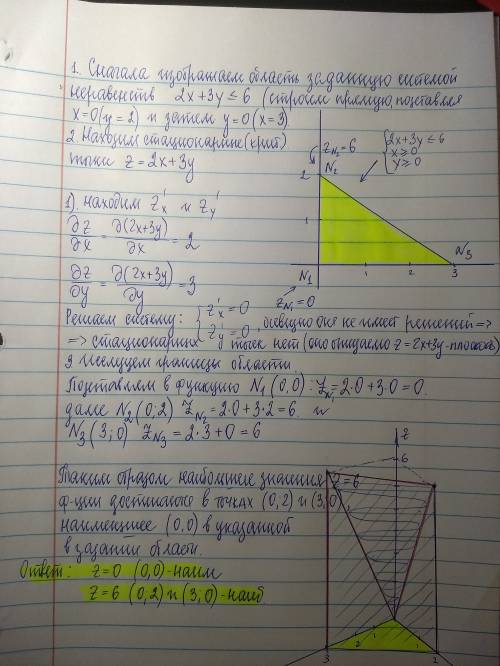 1. Сначала изображаем область заданную системой
неравенств 2x+3y≤6 (строим прямую, подставляя
x=0 (y=2) и затем y=0 (x=3)
2. Находим стационарные (крит)
точки z=2x+3y
1). находим z'x и z'y
∂z/∂x = ∂(2x+3y)/∂x = 2
∂z/∂y = ∂(2x+3y)/∂y = 3
zN2=6
N2
{2x+3y≤6
x≥0
y≥0
2
1
1
2
3
N3
N1
zN1=0
Решаем систему: {z'x=0
z'y=0, очевидно она не имеет решений=>
=> стационарных точек нет (оно очевидно z=2x+3y-плоскость)
Исследуем границы области.
Подставляем в функцию N1(0,0): zN1=2·0+3·0=0.
далее N2(0;2) zN2=2·0+3·2=6. и
N3(3;0) zN3=2·3+0=6
Таким образом наибольшие значения z=6
ф-ции достигают в точках (0,2) и (3,0)
наименьшее (0,0) в указанной
в задании области.
Ответ: z=0 (0,0)-наим
z=6 (0,2) и (3,0)-наиб
z
6
3
2
1
1
2